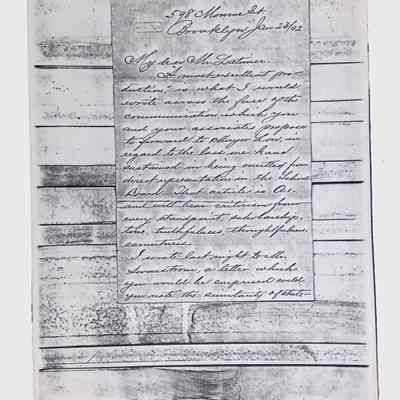 598 Monroe St.
Brooklyn Jan 23/02
My dear Mr. Latimer:
"A most excellent pro-
duction," is what I would
wrote across the face of the
communication which you
and your associates propose
to forward to Mayor Low, in
regard to the loss we have
sustained in being omitted from
direct representation in the School
Board. That article is A1.
and will bear criticism from
every standpoint, scholarship,
tone, truthfulness, thoughtfulness,
earnestness.
I wrote last night to Mr.
a letter which
you would be surprised could
you note the similarity of state-